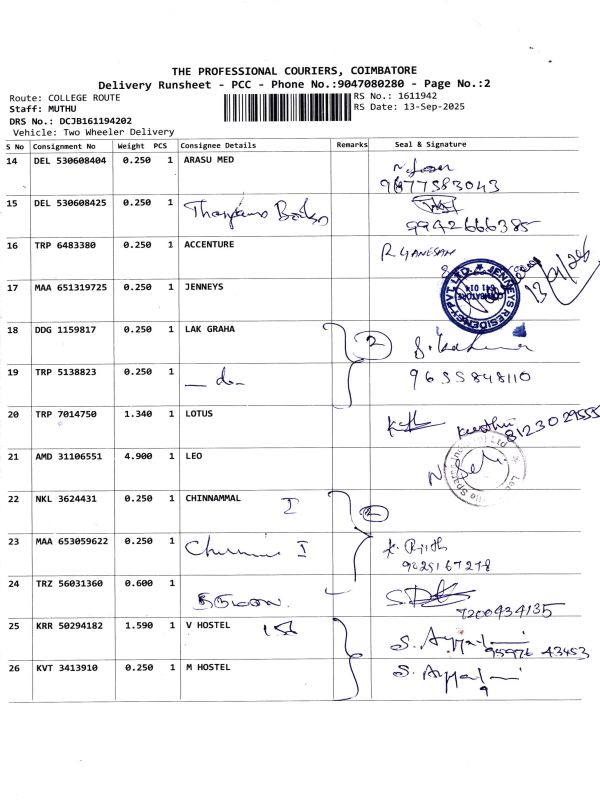 THE PROFESSIONAL COURIERS, COIMBATORE
Delivery Runsheet - PCC - Phone No.:9047080280 - Page No.:2
Route: COLLEGE ROUTE
Staff: MUTHU
DRS No.: DCJB161194202
Vehicle: Two Wheeler Delivery
RS No.: 1611942
RS Date: 13-Sep-2025
S No Consignment No Weight PCS Consignee Details Remarks Seal & Signature
14 DEL 530608404 0.250 1 ARASU MED
15 DEL 530608425 0.250 1 9942666385
16 TRP 6483380 0.250 1 ACCENTURE R GANESAN
17 MAA 651319725 0.250 1 JENNEYS JENNEYS RESIDENCY PVT LTD. COIMBATORE 641 014
18 DDG 1159817 0.250 1 LAK GRAHA 2
19 TRP 5138823 0.250 1 — do — 9655848110
20 TRP 7014750 1.340 1 LOTUS 8123029555
21 AMD 31106551 4.900 1 LEO
22 NKL 3624431 0.250 1 CHINNAMMAL I 2
23 MAA 653059622 0.250 1 I 9025167278
24 TRZ 56031360 0.600 1 7200434135
25 KRR 50294182 1.590 1 V HOSTEL 95976 43453
26 KVT 3413910 0.250 1 M HOSTEL